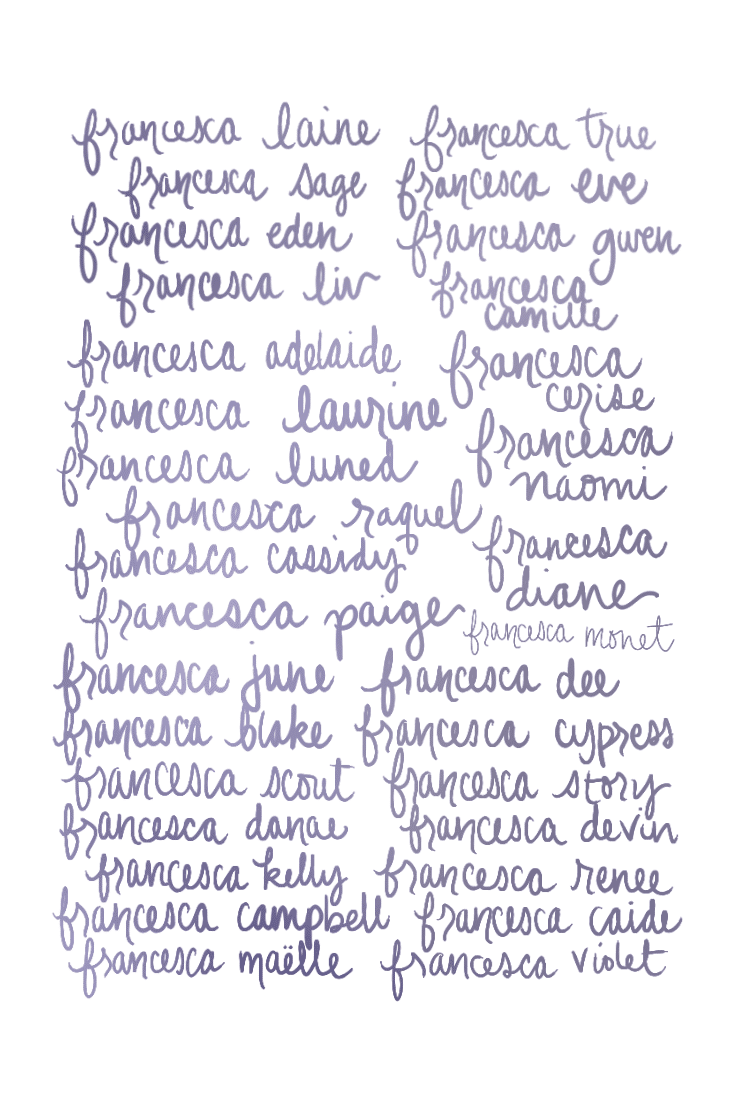 francesca laine
francesca true
francesca sage
francesca eve
francesca eden
francesca gwen
francesca liv
francesca
camille
francesca adelaide
francesca
cerise
francesca laurine
francesca
naomi
francesca luned
francesca raquel
francesca
diane
francesca cassidy
francesca paige
francesca monet
francesca june
francesca dee
francesca blake
francesca cypress
francesca scout
francesca story
francesca danae
francesca devin
francesca kelly
francesca renee
francesca campbell
francesca caide
francesca maëlle
francesca violet